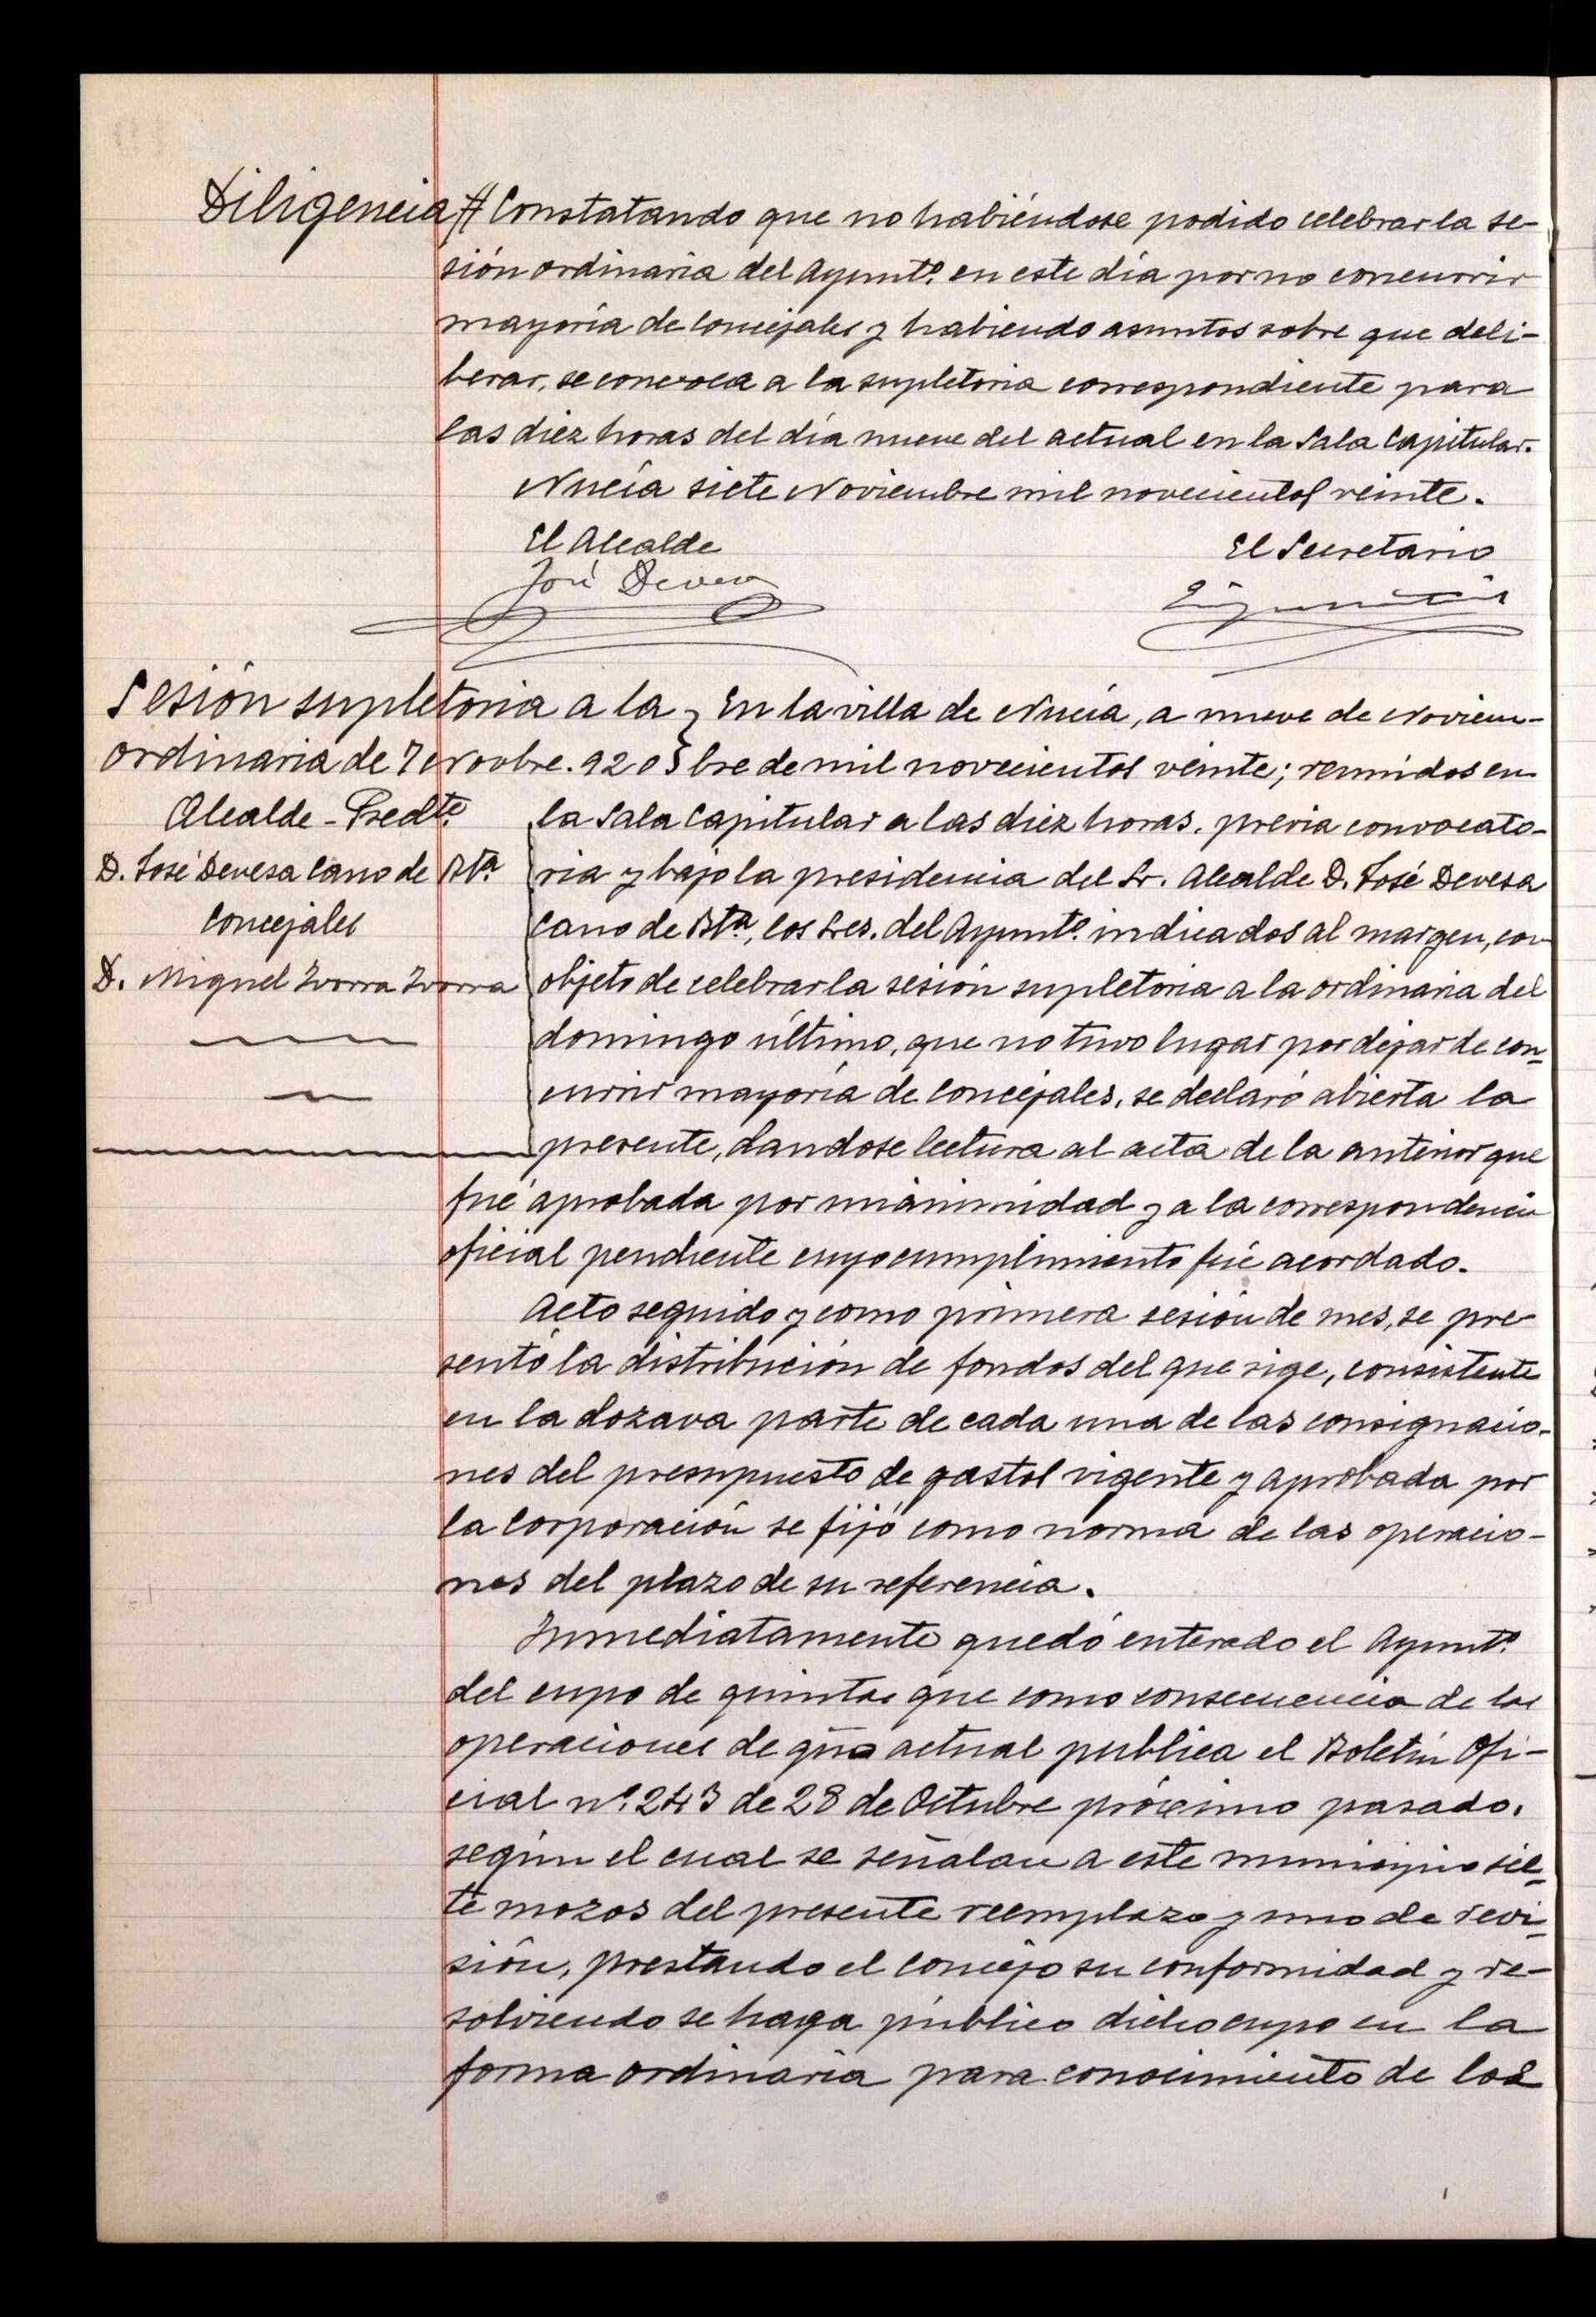 Diligencia # Constatando que no habiéndose podido celebrar la se-
sión ordinaria del Ayuntº. en este día por no concurrir
mayoría de Concejales y habiendo asuntos sobre que deli-
berar, se convoca a la supletoria correspondiente para
las diez horas del día nueve del actual en la Sala Capitular.
Nucía siete Noviembre mil novecientos veinte.
El Alcalde
El Secretario
José Devesa
Sesión supletoria a la
ordinaria de 7 Novbre. 920
Alcalde-Predte.
D. José Devesa Cano de Bta.
Concejales
D. Miguel Ivorra Ivorra
En la villa de Nucía, a nueve de Noviem-
bre de mil novecientos veinte; reunidos en
la Sala Capitular a las diez horas, previa convocato-
ria y bajo la presidencia del Sr. Alcalde D. José Devesa
Cano de Bta., los Sres. del Ayuntº. indicados al margen, con
objeto de celebrar la sesión supletoria a la ordinaria del
domingo último, que no tuvo lugar por dejar de con-
currir mayoría de Concejales, se declaró abierta la
presente, dandose lectura al acta de la anterior que
fué aprobada por unánimidad y a la correspondencia
oficial pendiente cuyo cumplimiento fué acordado.
Acto seguido y como primera sesión de mes, se pre-
sentó la distribución de fondos del que rige, consistente
en la dozava parte de cada una de las consignacio-
nes del presupuesto de gastos vigente y aprobada por
la Corporación se fijó como norma de las operacio-
nes del plazo de su referencia.
Inmediatamente quedó enterado el Ayuntº.
del cupo de quintas que como consecuencia de las
operaciones de qta actual publica el Boletín Ofi-
cial nº. 243 de 28 de Octubre próximo pasado,
según el cual se señalan a este municipio sie-
te mozos del presente reemplazo y uno de revi-
sión, prestando el Concejo su conformidad y re-
solviendo se haga público dicho cupo en la
forma ordinaria para conocimiento de los